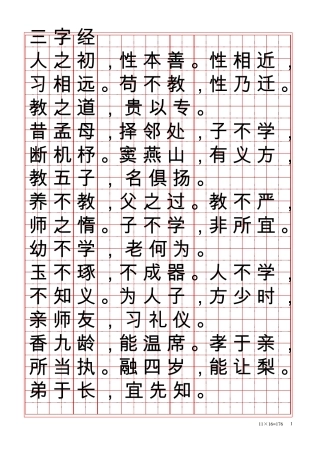 三字经
人之初，性本善。性相近，
习相远。苟不教，性乃迁。
教之道，贵以专。
昔孟母，择邻处，子不学，
断机杼。窦燕山，有义方，
教五子，名俱扬。
养不教，父之过。教不严，
师之惰。子不学，非所宜。
幼不学，老何为。
玉不琢，不成器。人不学，
不知义。为人子，方少时，
亲师友，习礼仪。
香九龄，能温席。孝于亲，
所当执。融四岁，能让梨。
弟于长，宜先知。
11×16=176 1